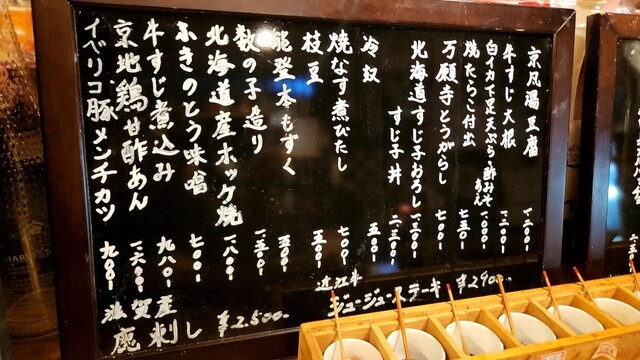 京風湯豆腐 一、二〇〇-
牛すじ大根 一、二〇〇-
白イカ下足天ぷら 酢みそあん 一、〇〇〇-
焼たらこ付出 七五〇-
万願寺とうがらし 七〇〇-
北海道すじ子おろし 一、三〇〇-
すじ子丼 二、三〇〇-
冷奴 五〇〇-
焼なす煮びたし 七〇〇-
枝豆 五〇〇-
能登本もずく 五〇〇-
数の子造り 一、五〇〇-
北海道産ホッケ焼 一、八〇〇-
ふきのとう味噌 七〇〇-
牛すじ煮込み 九八〇-
京地鶏甘酢あん 一、六〇〇-
イベリコ豚メンチカツ 九〇〇-
近江牛
ジュージューステーキ ¥2900-
滋賀産
鹿刺し ¥2.500-